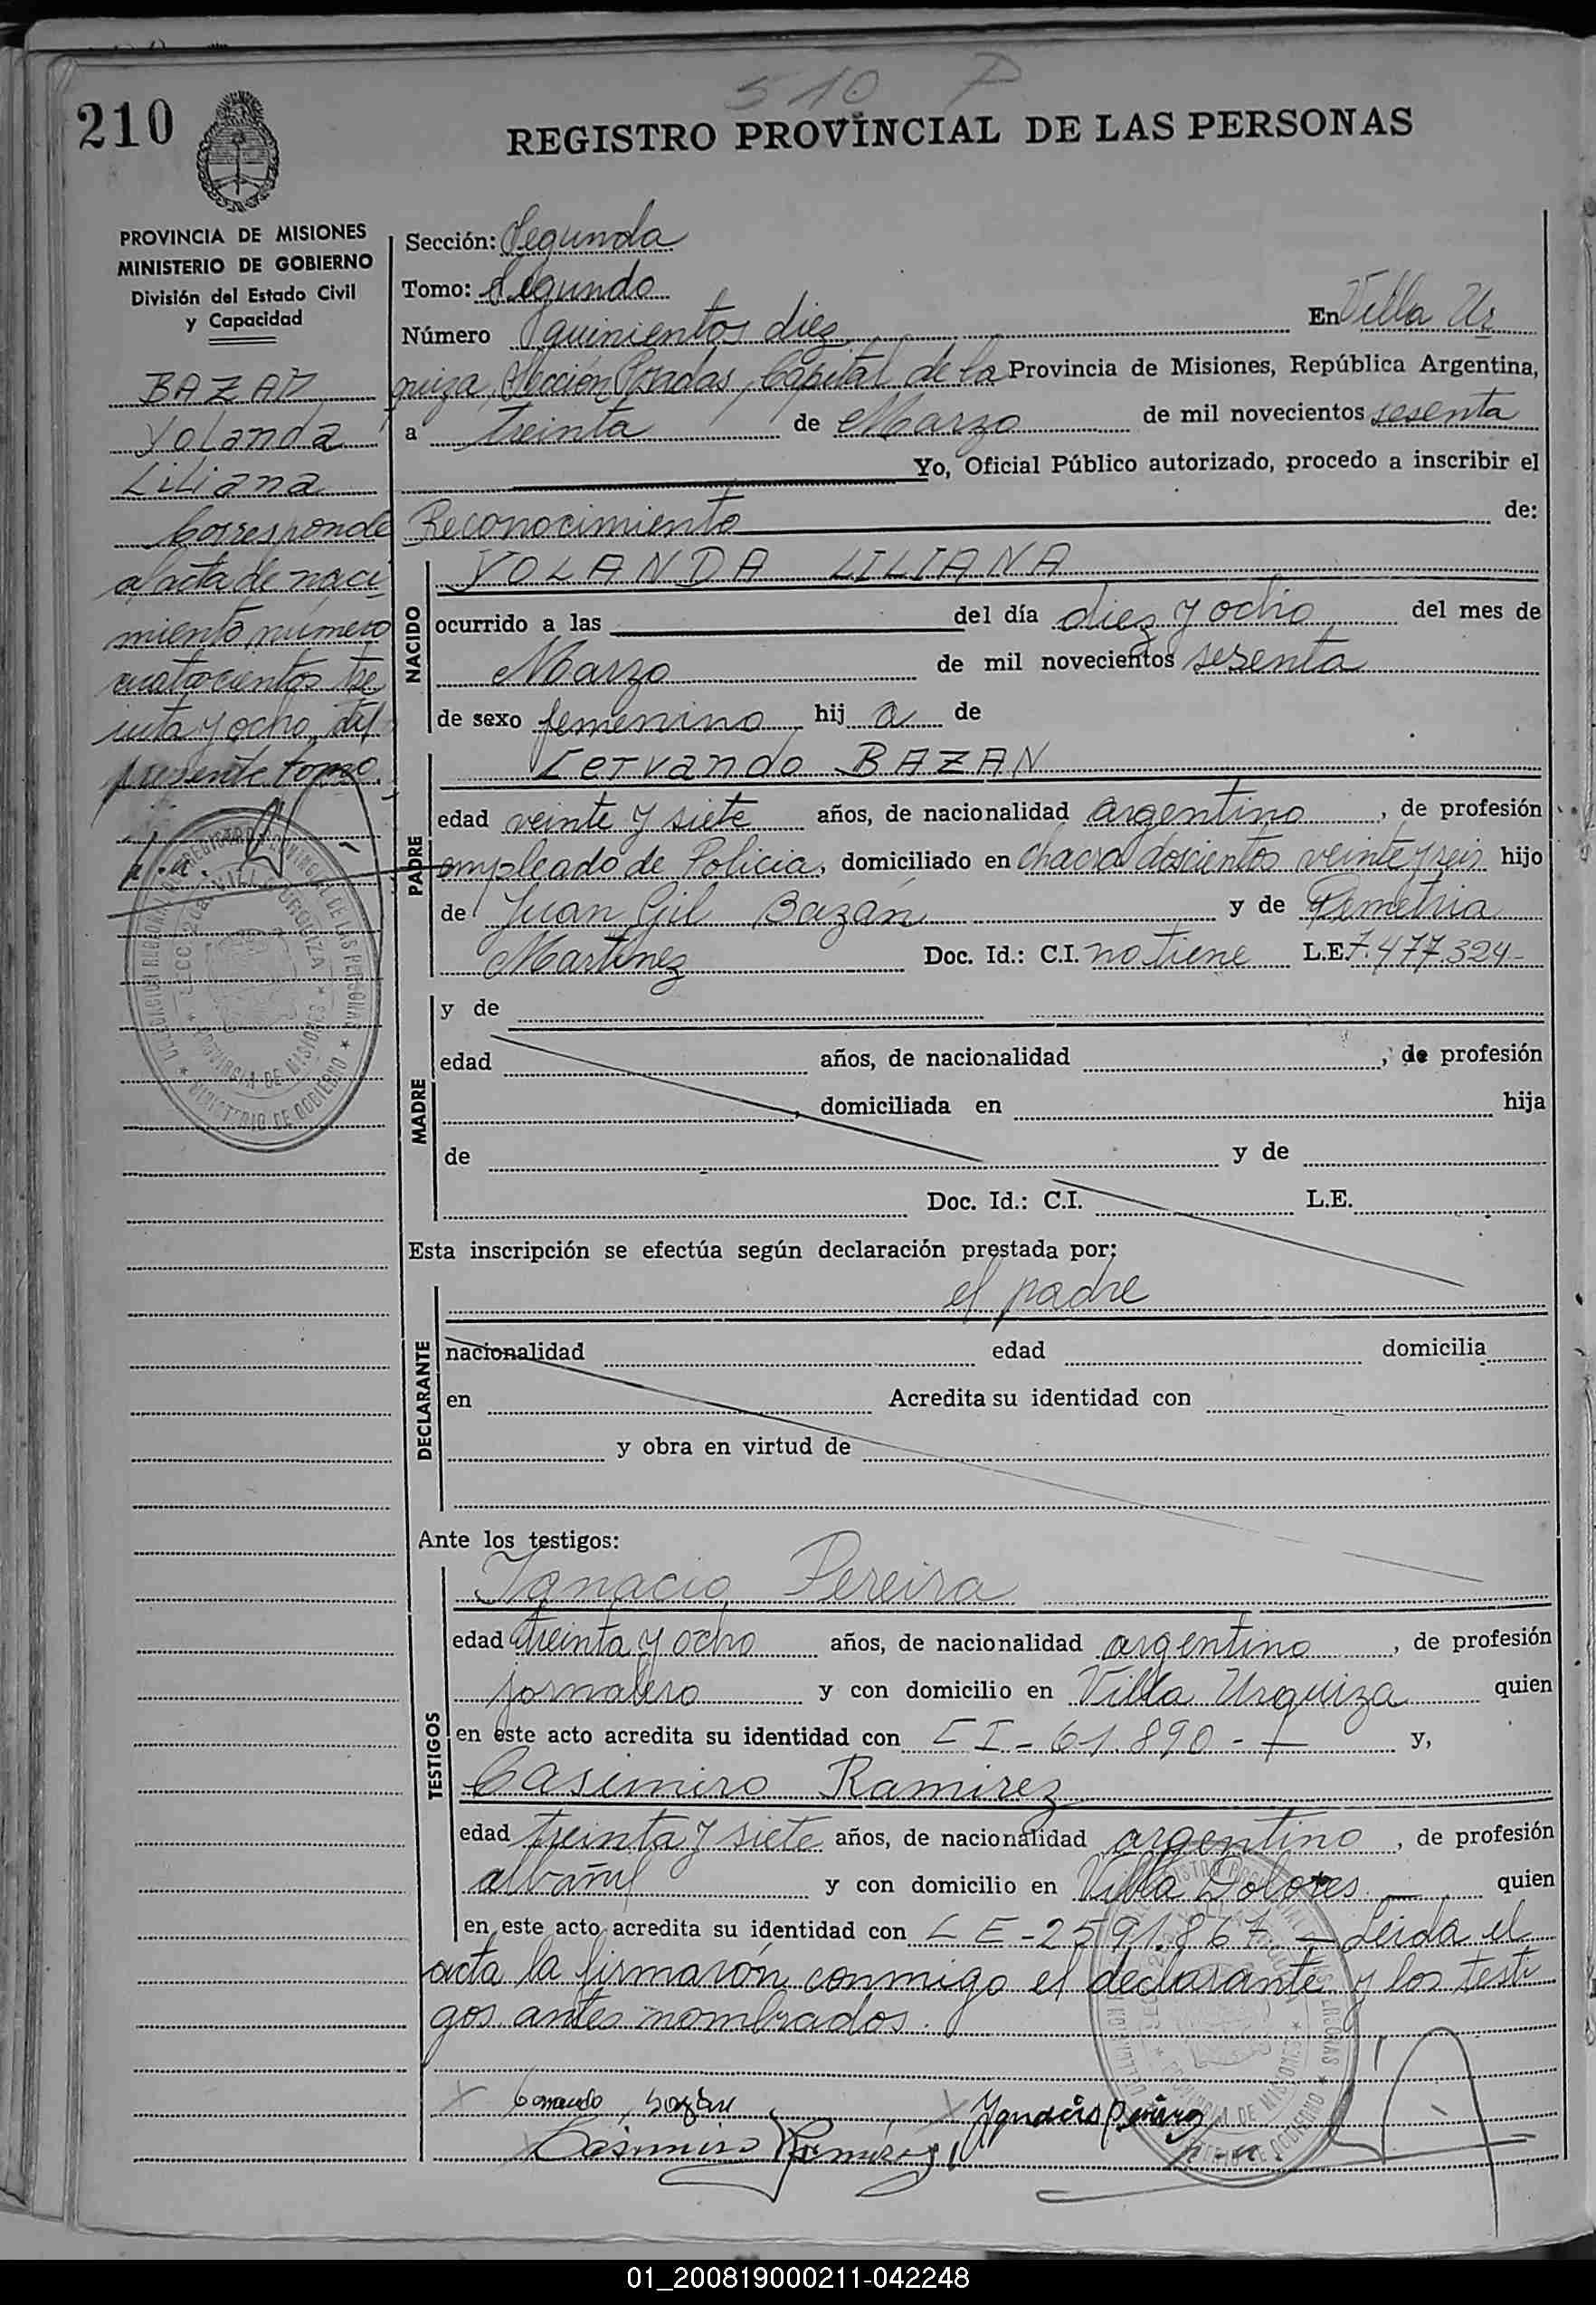 510 P
210
REGISTRO PROVINCIAL DE LAS PERSONAS
PROVINCIA DE MISIONES
MINISTERIO DE GOBIERNO
División del Estado Civil
y Capacidad
BAZAN
Yolanda
Liliana
Corresponde
al acta de naci
miento número
cuatrocientos tre
inta y ocho del
presente tomo.
Sección: Segunda
Tomo: Segundo
Número quinientos diez En Villa Ur
quiza, Sección Posadas, Capital de la Provincia de Misiones, República Argentina,
a treinta de Marzo de mil novecientos sesenta
Yo, Oficial Público autorizado, procedo a inscribir el
Reconocimiento de:
NACIDO
YOLANDA LILIANA
ocurrido a las del día diez y ocho del mes de
Marzo de mil novecientos sesenta
de sexo femenino hij a de
PADRE
Cervando BAZAN
edad veinte y siete años, de nacionalidad argentino, de profesión
empleado de Policia, domiciliado en chacra doscientos veinte y seis hijo
de Juan Gil Bazán y de Demetria
Martinez Doc. Id.: C.I. no tiene L.E. 7.477.324-
MADRE
y de
edad años, de nacionalidad , de profesión
, domiciliada en hija
de y de
Doc. Id.: C.I. L.E.
Esta inscripción se efectúa según declaración prestada por:
el padre
DECLARANTE
nacionalidad edad domicilia
en Acredita su identidad con
y obra en virtud de
Ante los testigos:
TESTIGOS
Ignacio Pereira
edad treinta y ocho años, de nacionalidad argentino, de profesión
jornalero y con domicilio en Villa Urquiza quien
en este acto acredita su identidad con CI - 61.890 - y,
Casimiro Ramirez
edad treinta y siete años, de nacionalidad argentino, de profesión
albañil y con domicilio en Villa Dolores quien
en este acto acredita su identidad con LE - 2591.867 - Leida el
acta la firmarón conmigo el declarante y los testi
gos antes nombrados.
Casimiro Ramirez
01_200819000211-042248